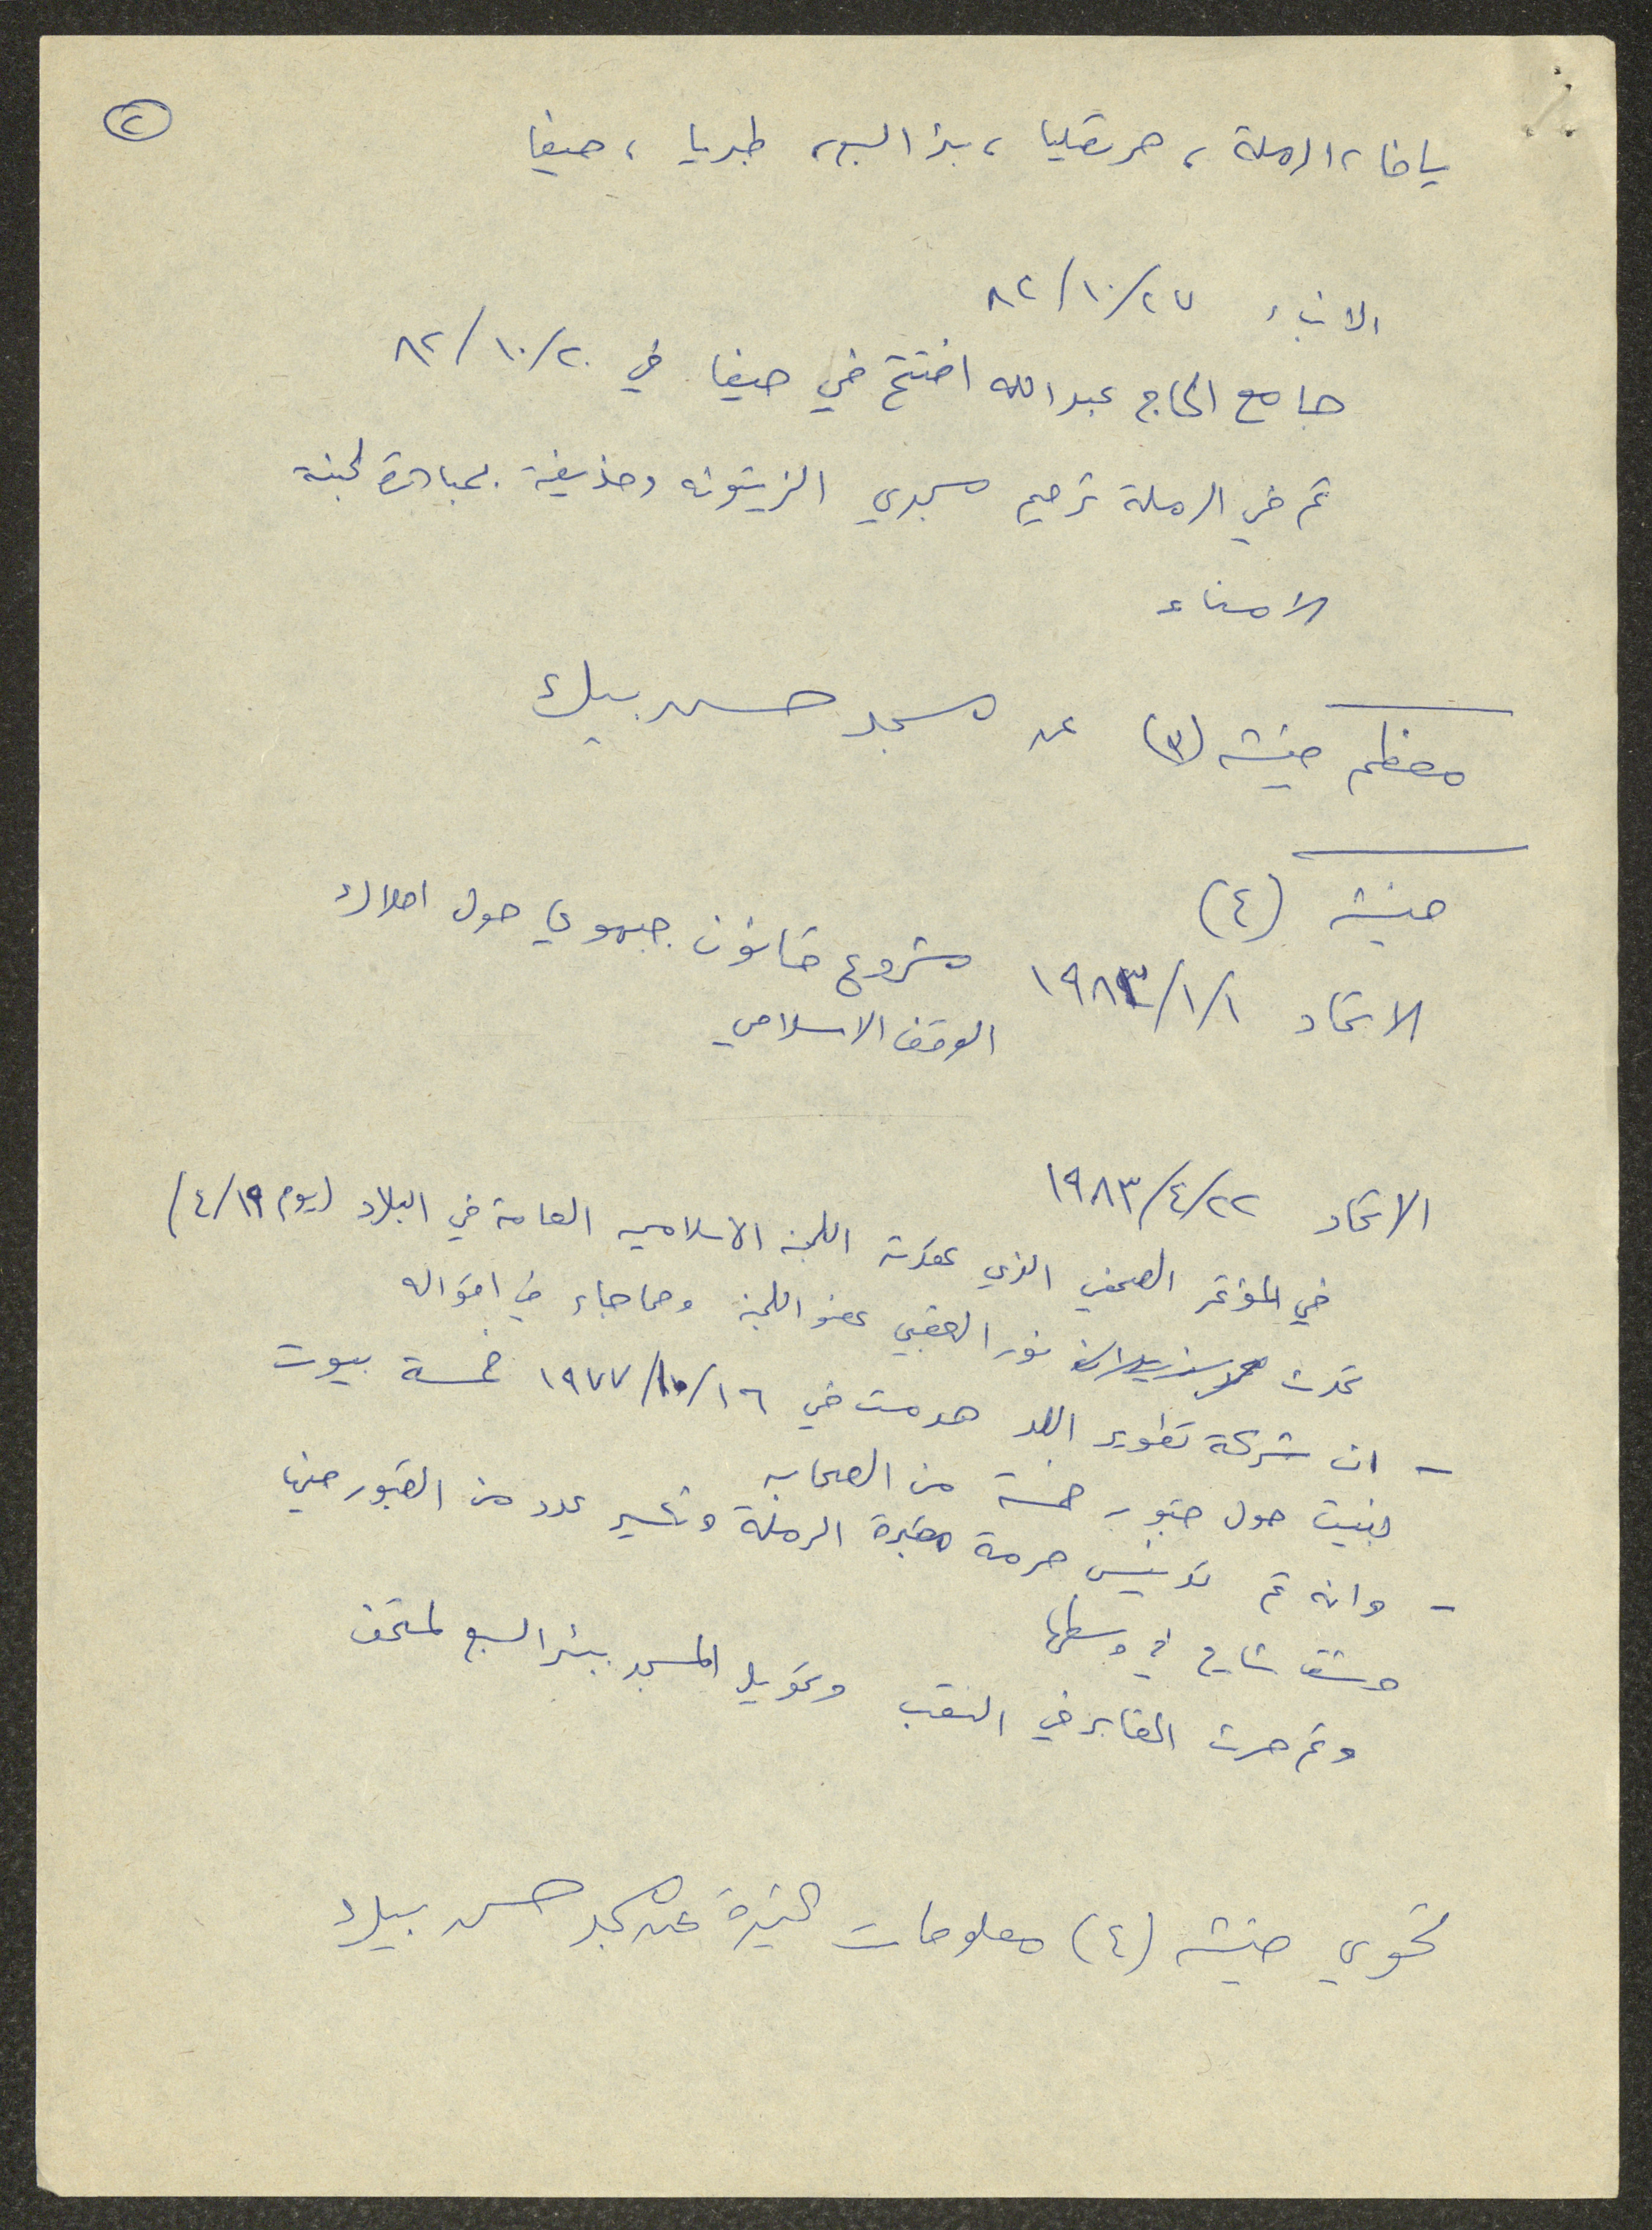 ٢
يافا، الرملة، صرفند، بئر السبع، طبريا، حيفا
الانباء ٨٢/١٠/٢٧
جامع الحاج عبدالله افتتح في حيفا في ٨٢/١٠/٢٠
تم في الرملة ترميم مسجدي الزيتونه وحذيفة بمبادرة لجنة
الامناء
معظم (٣) عن مسجد حسن بيك
(٤)
الاتحاد ١٩٨٣/١/١ مشروع قانون جبهوي حول املاك
الوقف الاسلامي
الاتحاد ١٩٨٣/٤/٢٢
في المؤتمر الصحفي الذي عقدته اللجنة الاسلامية العامة في البلاد (يوم ٤/١٩)
تحدث نوري العقبي عضو اللجنة ومما جاء في اقواله
- ان شركة تطوير اللد هدمت في ١٩٧٧/١٠/١٦ خمسة بيوت
بنيت حول قبور خمسة من الصحابه
- وانه تم تدنيس حرمة مقبرة الرملة وتكسير عدد من القبور فيها
وشق شارع في وسطها
وتم حرث المقابر في النقب وتحويل المسجد ببئر السبع لمتحف
تحوي (٤) معلومات كثيرة عن مسجد حسن بيك